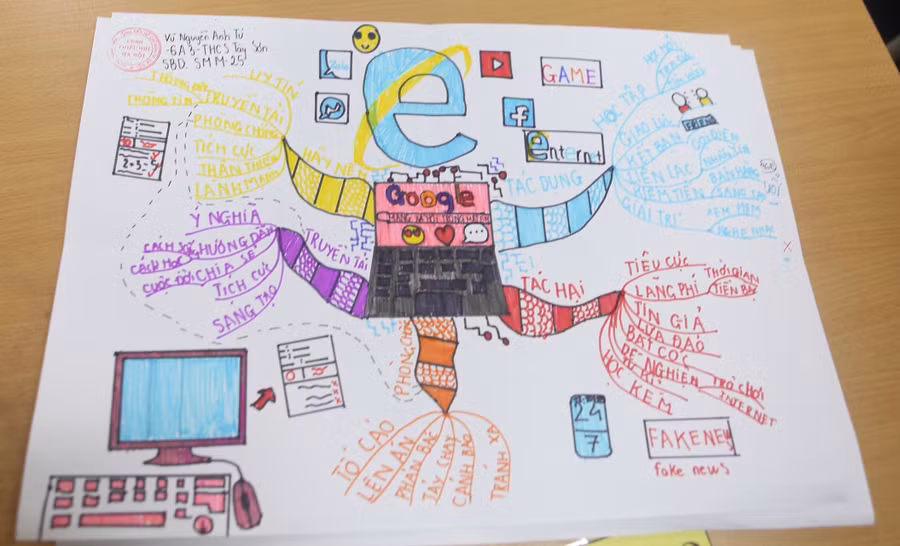 Vũ Nguyễn Anh Tú
-6A3-THCS Tây Sơn
SBD. SMM-25
Zalo
GAME
e
enternet
Google
HÃY NÊN
UY TÍN
TRUYỀN TẢI
THÔNG TIN
PHÒNG CHỐNG
TÍCH CỰC
THÂN THIỆN
LÀNH MẠNH
TRUYỀN TẢI
Ý NGHĨA
HƯỚNG DẪN
CÁCH HỌC
CHIA SẺ
CUỘC ĐỜI
TÍCH CỰC
SÁNG TẠO
TÁC DỤNG
HỌC TẬP
GIAO LƯU
KẾT BẠN
LIÊN LẠC
KIẾM TIỀN
BÁN HÀNG
GIẢI TRÍ
XEM PHIM
NGHE NHẠC
TÁC HẠI
TIÊU CỰC
LÃNG PHÍ
THỜI GIAN
TIỀN BẠC
TIN GIẢ
LỪA ĐẢO
BẮT CÓC
DỄ NGHIỆN
TRÒ CHƠI
INTERNET
HỌC KÉM
PHÒNG CHỐNG
TỐ CÁO
LÊN ÁN
PHẢN BÁC
TẨY CHAY
CẢNH BÁO
TRÁNH XA
24
7
FAKENEWS
fake news